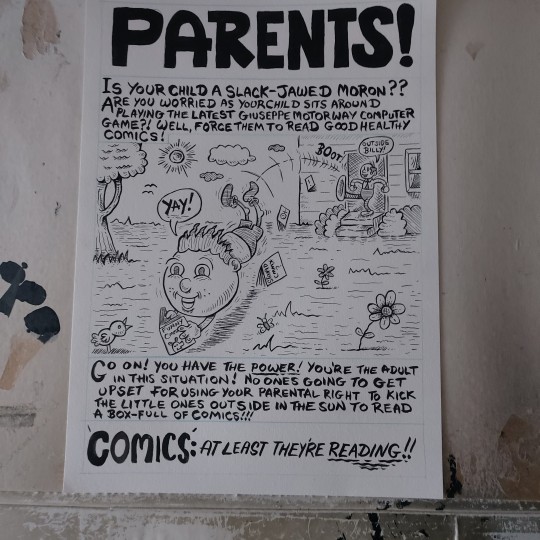 PARENTS!
IS YOUR CHILD A SLACK-JAWED MORON??
ARE YOU WORRIED AS YOUR CHILD SITS AROUND
PLAYING THE LATEST GIUSEPPE MOTORWAY COMPUTER
GAME?! WELL, FORCE THEM TO READ GOOD HEALTHY
COMICS!
BOOT!
OUTSIDE
BILLY!
YAY!
GO ON! YOU HAVE THE POWER! YOU'RE THE ADULT
IN THIS SITUATION! NO ONES GOING TO GET
UPSET FOR USING YOUR PARENTAL RIGHT TO KICK
THE LITTLE ONES OUTSIDE IN THE SUN TO READ
A BOX-FULL OF COMICS!!!
'COMICS': AT LEAST THEY'RE READING!!